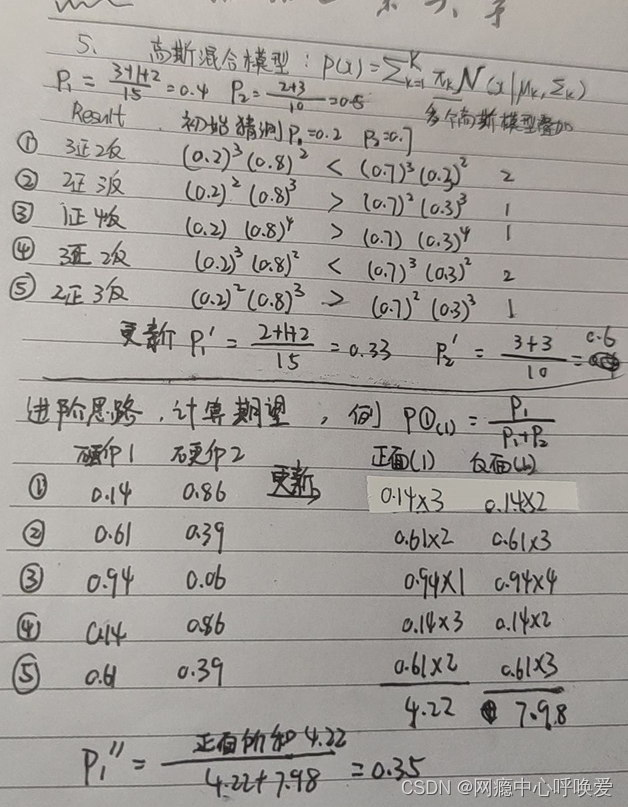 5、 高斯混合模型：P(x)=∑ᴷₖ₌₁ πₖ N(x|μₖ,Σₖ)
P₁ = (3+1+2)/15 = 0.4 P₂ = (2+3)/10 = 0.5 多个高斯模型叠加
Result 初始猜测 P₁=0.2 P₂=0.7
① 3正2反 (0.2)³(0.8)² < (0.7)³(0.3)² 2
② 2正3反 (0.2)²(0.8)³ > (0.7)²(0.3)³ 1
③ 1正4反 (0.2)(0.8)⁴ > (0.7)(0.3)⁴ 1
④ 3正2反 (0.2)³(0.8)² < (0.7)³(0.3)² 2
⑤ 2正3反 (0.2)²(0.8)³ > (0.7)²(0.3)³ 1
更新 P₁' = (2+1+2)/15 = 0.33 P₂' = (3+3)/10 = 0.6
进阶思路，计算期望，例 P①₍₁₎ = P₁/(P₁+P₂)
硬币1 硬币2 更新 正面(1) 反面(1)
① 0.14 0.86 0.14×3 0.14×2
② 0.61 0.39 0.61×2 0.61×3
③ 0.94 0.06 0.94×1 0.94×4
④ 0.14 0.86 0.14×3 0.14×2
⑤ 0.61 0.39 0.61×2 0.61×3
4.22 7.98
P₁'' = 正面的和4.22/(4.22+7.98) = 0.35
CSDN @网瘾中心呼唤爱